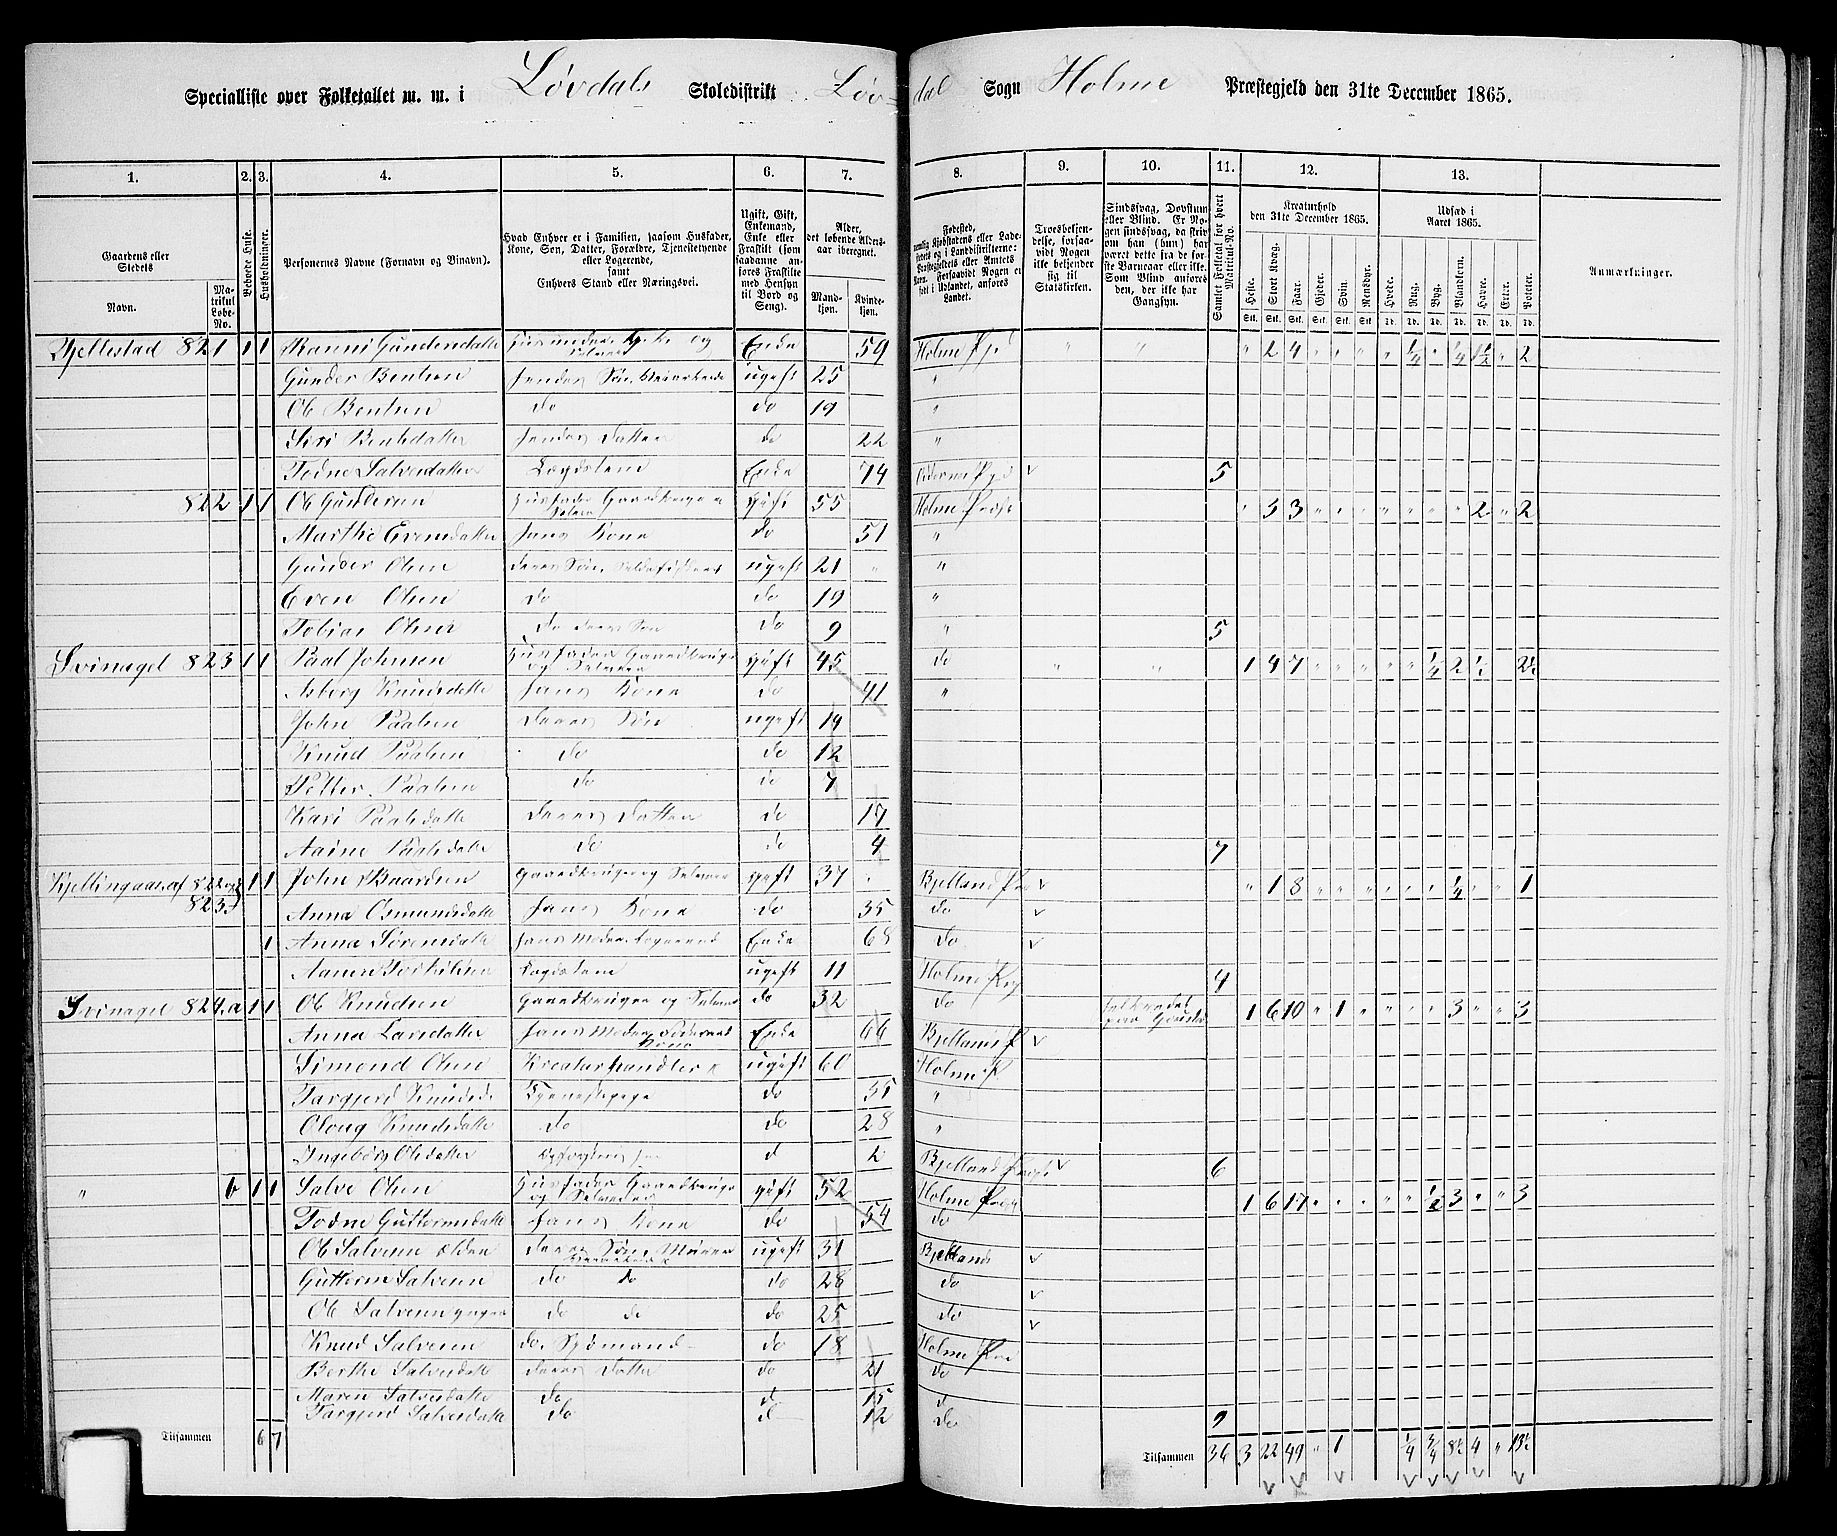 Specialliste over Folketallet m. m. i Løvdals Skoledistrikt Løvdal Sogn Holme Præstegjeld den 31te December 1865.
1. 2. 3. 4. 5. 6. 7. 8. 9. 10. 11. 12. 13.
Gaardens eller Stedets Navn. Matrikul Løbe-No. Beboede Huse. Husholdninger. Personernes Navne (Fornavn og Vinavn). Hvad Enhver er i Familien, saasom Husfader, Kone, Søn, Datter, Forældre, Tjenestetyende eller Logerende, samt Enhvers Stand eller Næringsvei. Ugift, Gift, Enkemand, Enke eller Fraskilt (som saadanne anføres Fraskilte med Hensyn til Bord og Seng). Alder, det løbende Aldersaar iberegnet. Mandkjøn. Kvindekjøn.
Fødested, Troesbekjendelse, forsaavidt Nogen ikke bekjender sig til Statskirken. Sindssvag, Døvstum eller Blind. Samlet Folketal for hvert Matrikul-No. Kreaturhold den 31te December 1865. Heste. Stort Kvæg. Faar. Gjeder. Svin. Rensdyr. Udsæd i Aaret 1865. Hvede. Rug. Byg. Blandkorn. Havre. Erter. Poteter. Anmærkninger.
821 1 1 Gundersdatter Enke 59 Holme Prgj " " " 2 4 " " " " 1/4 " 1/4 1 1/2 " 2
Gunder Bentsen hendes Søn ugift 25 "
Ole Bentsen do do 19 "
Siri Bentsdatter hendes Datter do 22 "
Todne Salvesdatter Lægdslem Enke 74 v 5
822 1 1 Ole Gundersen Husfader Gaardbruger Selveier gift 55 Holme Præst " 5 3 " " " " " " " 2 " 2
Marthe Evensdatter hans Kone do 51 "
Gunder Olsen deres Søn ugift 21 " "
Even Olsen do do 19 "
Tobias Olsen do deres Søn do 9 " 5
Svinagel 823 1 1 Paal Johnsen Husfader Gaardbruger og Selveier gift 45 do " " 1 4 7 " " " " " 1/4 2 1/2 " 2 1/2
Asborg Knudsdatter hans Kone do 41 "
John Paalsen deres Søn ugift 14
Knud Paalsen do do 12
Petter Paalsen do do 7
Kari Paalsdatter deres Datter do 17
Paalsdatter do do 4 7
822 og 823 1 1 John Gaardbruger og Selveier gift 37 Bjelland v " 1 8 " " " " " " 1/4 " " 1
Anna Osmundsdatter hans Kone do 35 do v
1 Anna Sørensdatter hans Moder Enke 68 do v
Lægdslem ugift 11 Holme 4
Svinagel 824.a 1 1 Ole Knudsen Gaardbruger og Selveier do 32 do 1 6 10 " 1 " " " " 3 " " 3
Anna Larsdatter hans Moder Enke 66 Bjelland v
Simond Olsen Kreaturhandler ugift 60 Holme P
Targjerd Knudsd Tjenestepige do 35 "
Oloug Knudsdatter do do 28 "
Ingeborg Olsdatter d 2 Bjelland Præst v 6
" b 1 1 Salve Olsen Husfader Gaardbruger og Selveier gift 52 Holme 1 6 17 " " " " " 1/2 3 " " 3
Todne Guttormsdatter hans Kone do 54 do
Ole Salvesen ælder deres Søn ugift 31 Bjelland v
Guttorm Salvesen do do do 28 do v
Ole Salvesen yngre do do do 25 do v
Knud Salvesen do. Sjømand do 18 Holme
Berthe Salvesdatter deres Datter do 21 do
Maren Salvesdatter do d 15 d
Targjerd Salvesdatte do d 12 do 9
Tilsammen 6 7 Tilsammen 36 3 22 49 " 1 1/4 3/4 8 1/2 4 " 13 1/2
v v v v v v v v